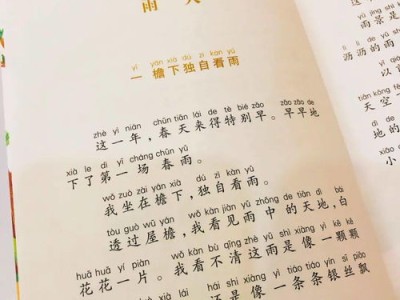 雨
yì yán xià dú zì kàn yǔ
一 檐下独自看雨
zhè yì nián chūn tiān lái de tè bié zǎo zǎo zǎo de
这一年，春天来得特别早。早早地
xià le dì yī chǎng chūn yǔ
下了第一场春雨。
wǒ zuò zài yán xià dú zì kàn yǔ
我坐在檐下，独自看雨。
tòu guò wū yán wǒ kàn jiàn yǔ zhōng de tiān dì bái
透过屋檐，我看见雨中的天地，白
huā huā yí piàn wǒ kàn bù qīng zhè yǔ shì xiàng yì kē kē
花花一片。我看不清这雨是像一颗颗
hái shi xiàng yì tiáo tiáo yín sī piāo
还是像一条条银丝飘
雨景是
沥沥的雨
天空一
地的
小